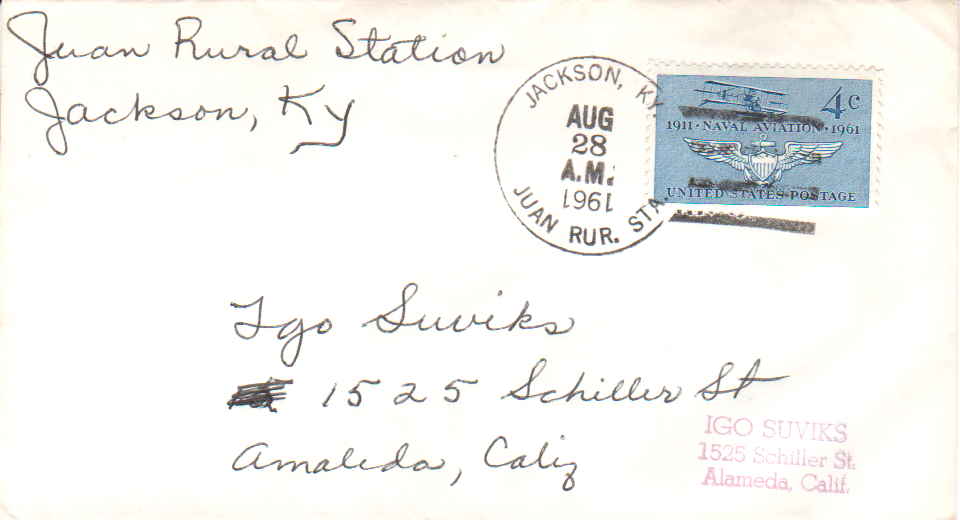 Juan Rural Station
Jackson, Ky
JACKSON, KY.
AUG
28
A.M.
1961
JUAN RUR. STA.
4c
1911 · NAVAL AVIATION · 1961
UNITED STATES POSTAGE
Igo Suviks
1525 Schiller St
Amaleda, Calif
IGO SUVIKS
1525 Schiller St.
Alameda, Calif.